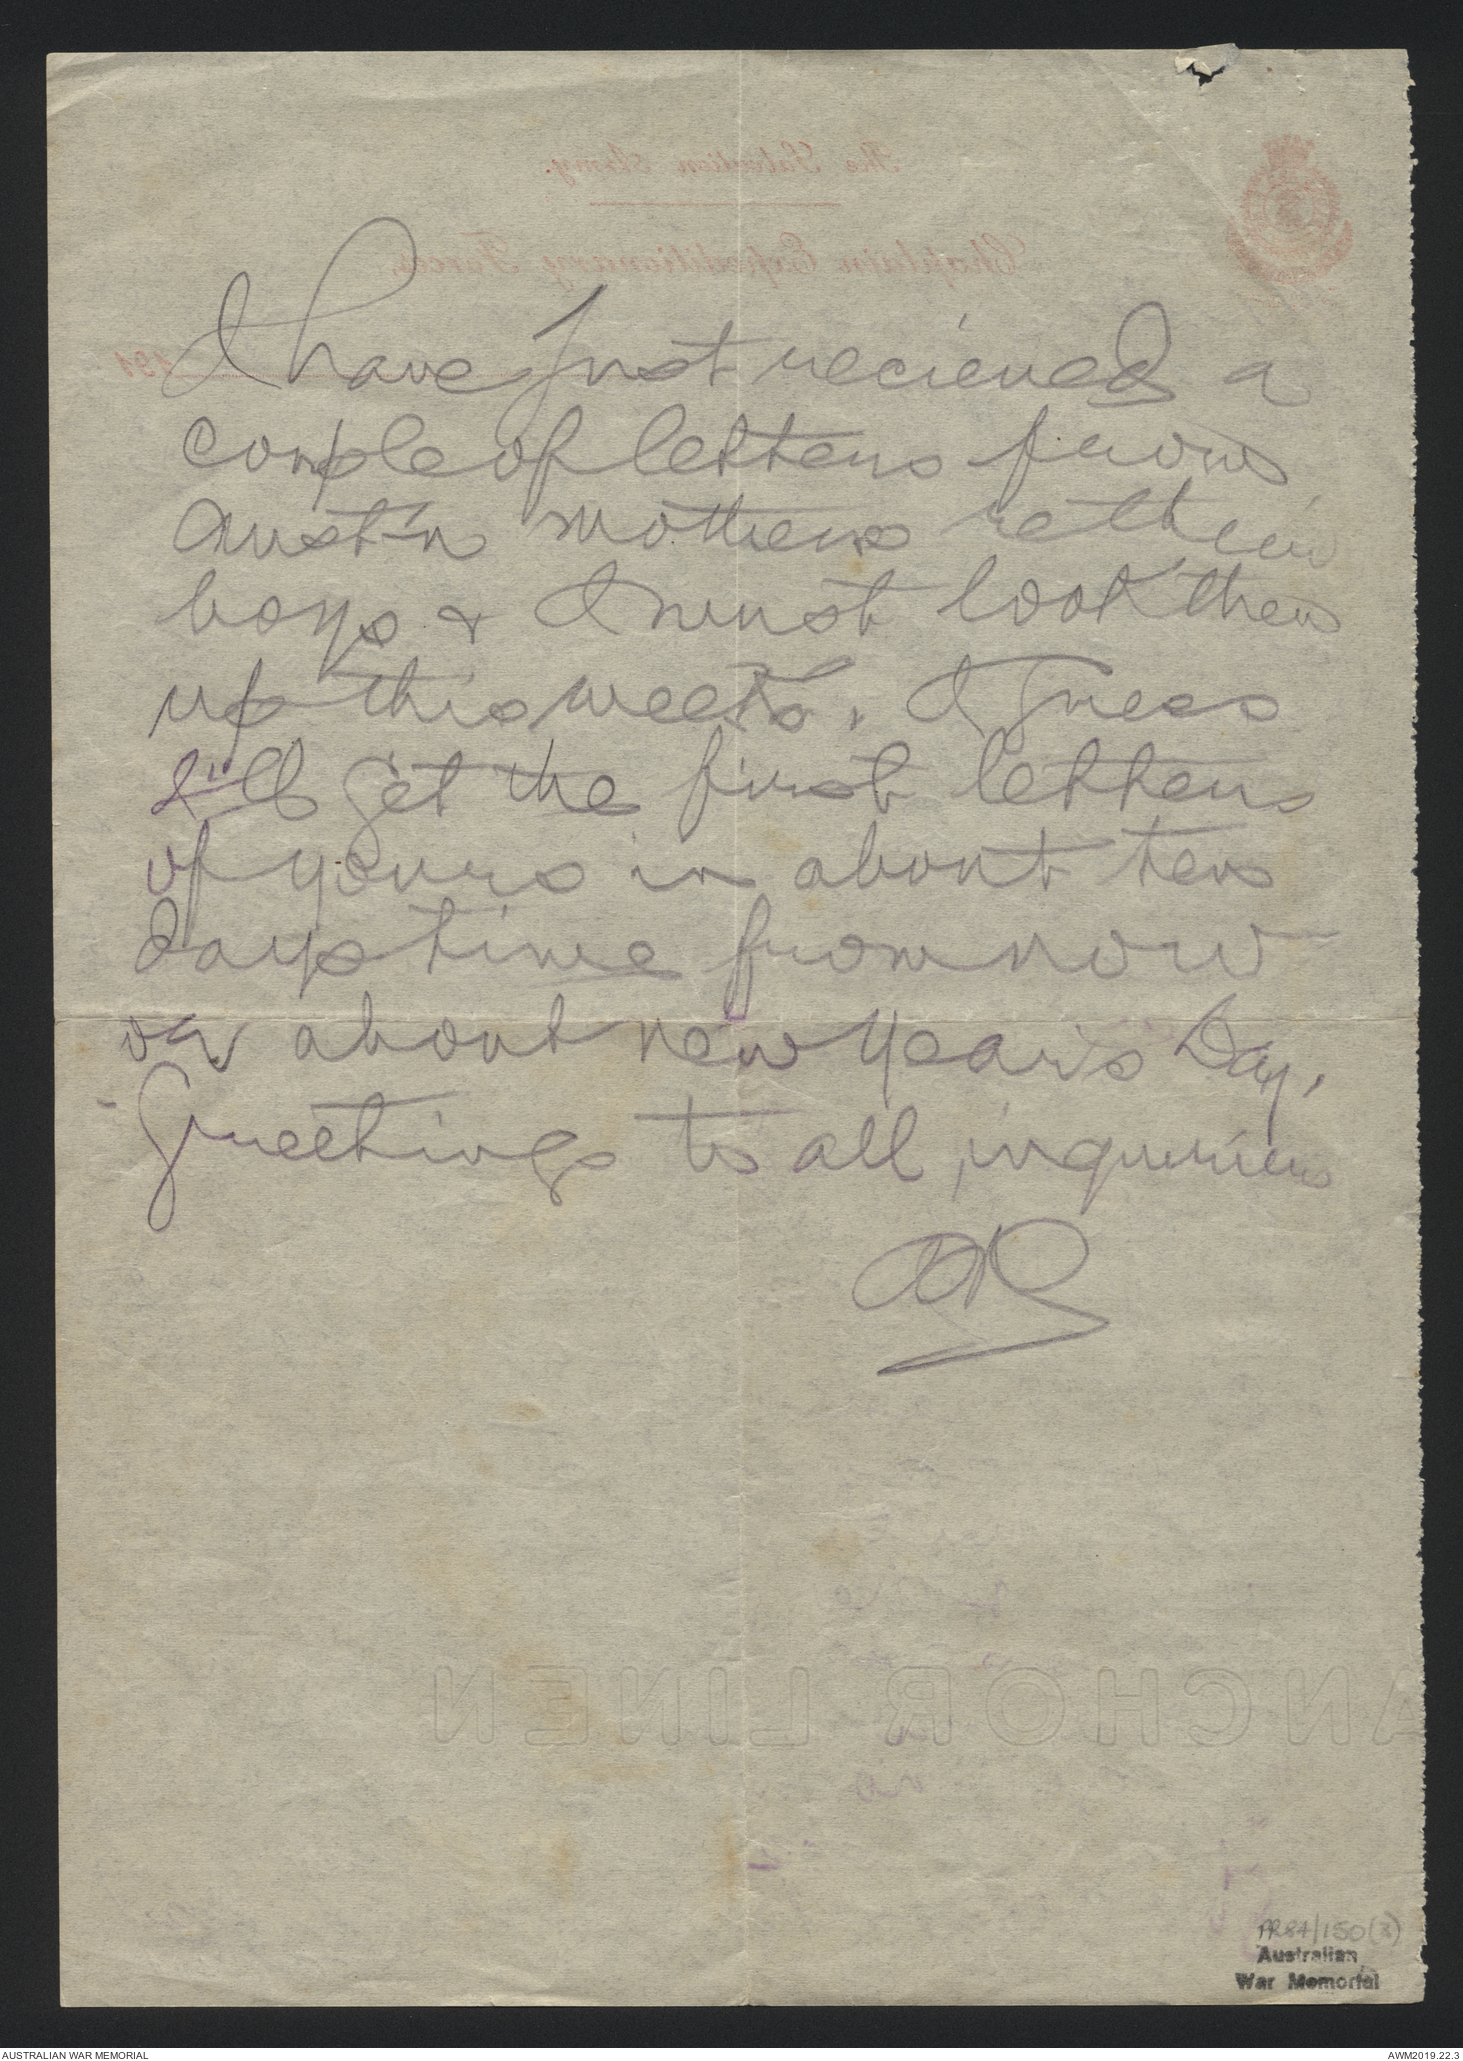 The Salvation Army.
Chaplain Expeditionary Forces.
191
I have just recieved a
couple of letters from
Austn mothers re their
boys & I must look them
up this week. I guess
I'll get the first letters
of yours in about ten
days time from now
or about new Year's Day.
Greetings to all inquiries
ANCHOR LINEN
PR84/150(3)
Australian
War Memorial
AUSTRALIAN WAR MEMORIAL
AWM2019.22.3